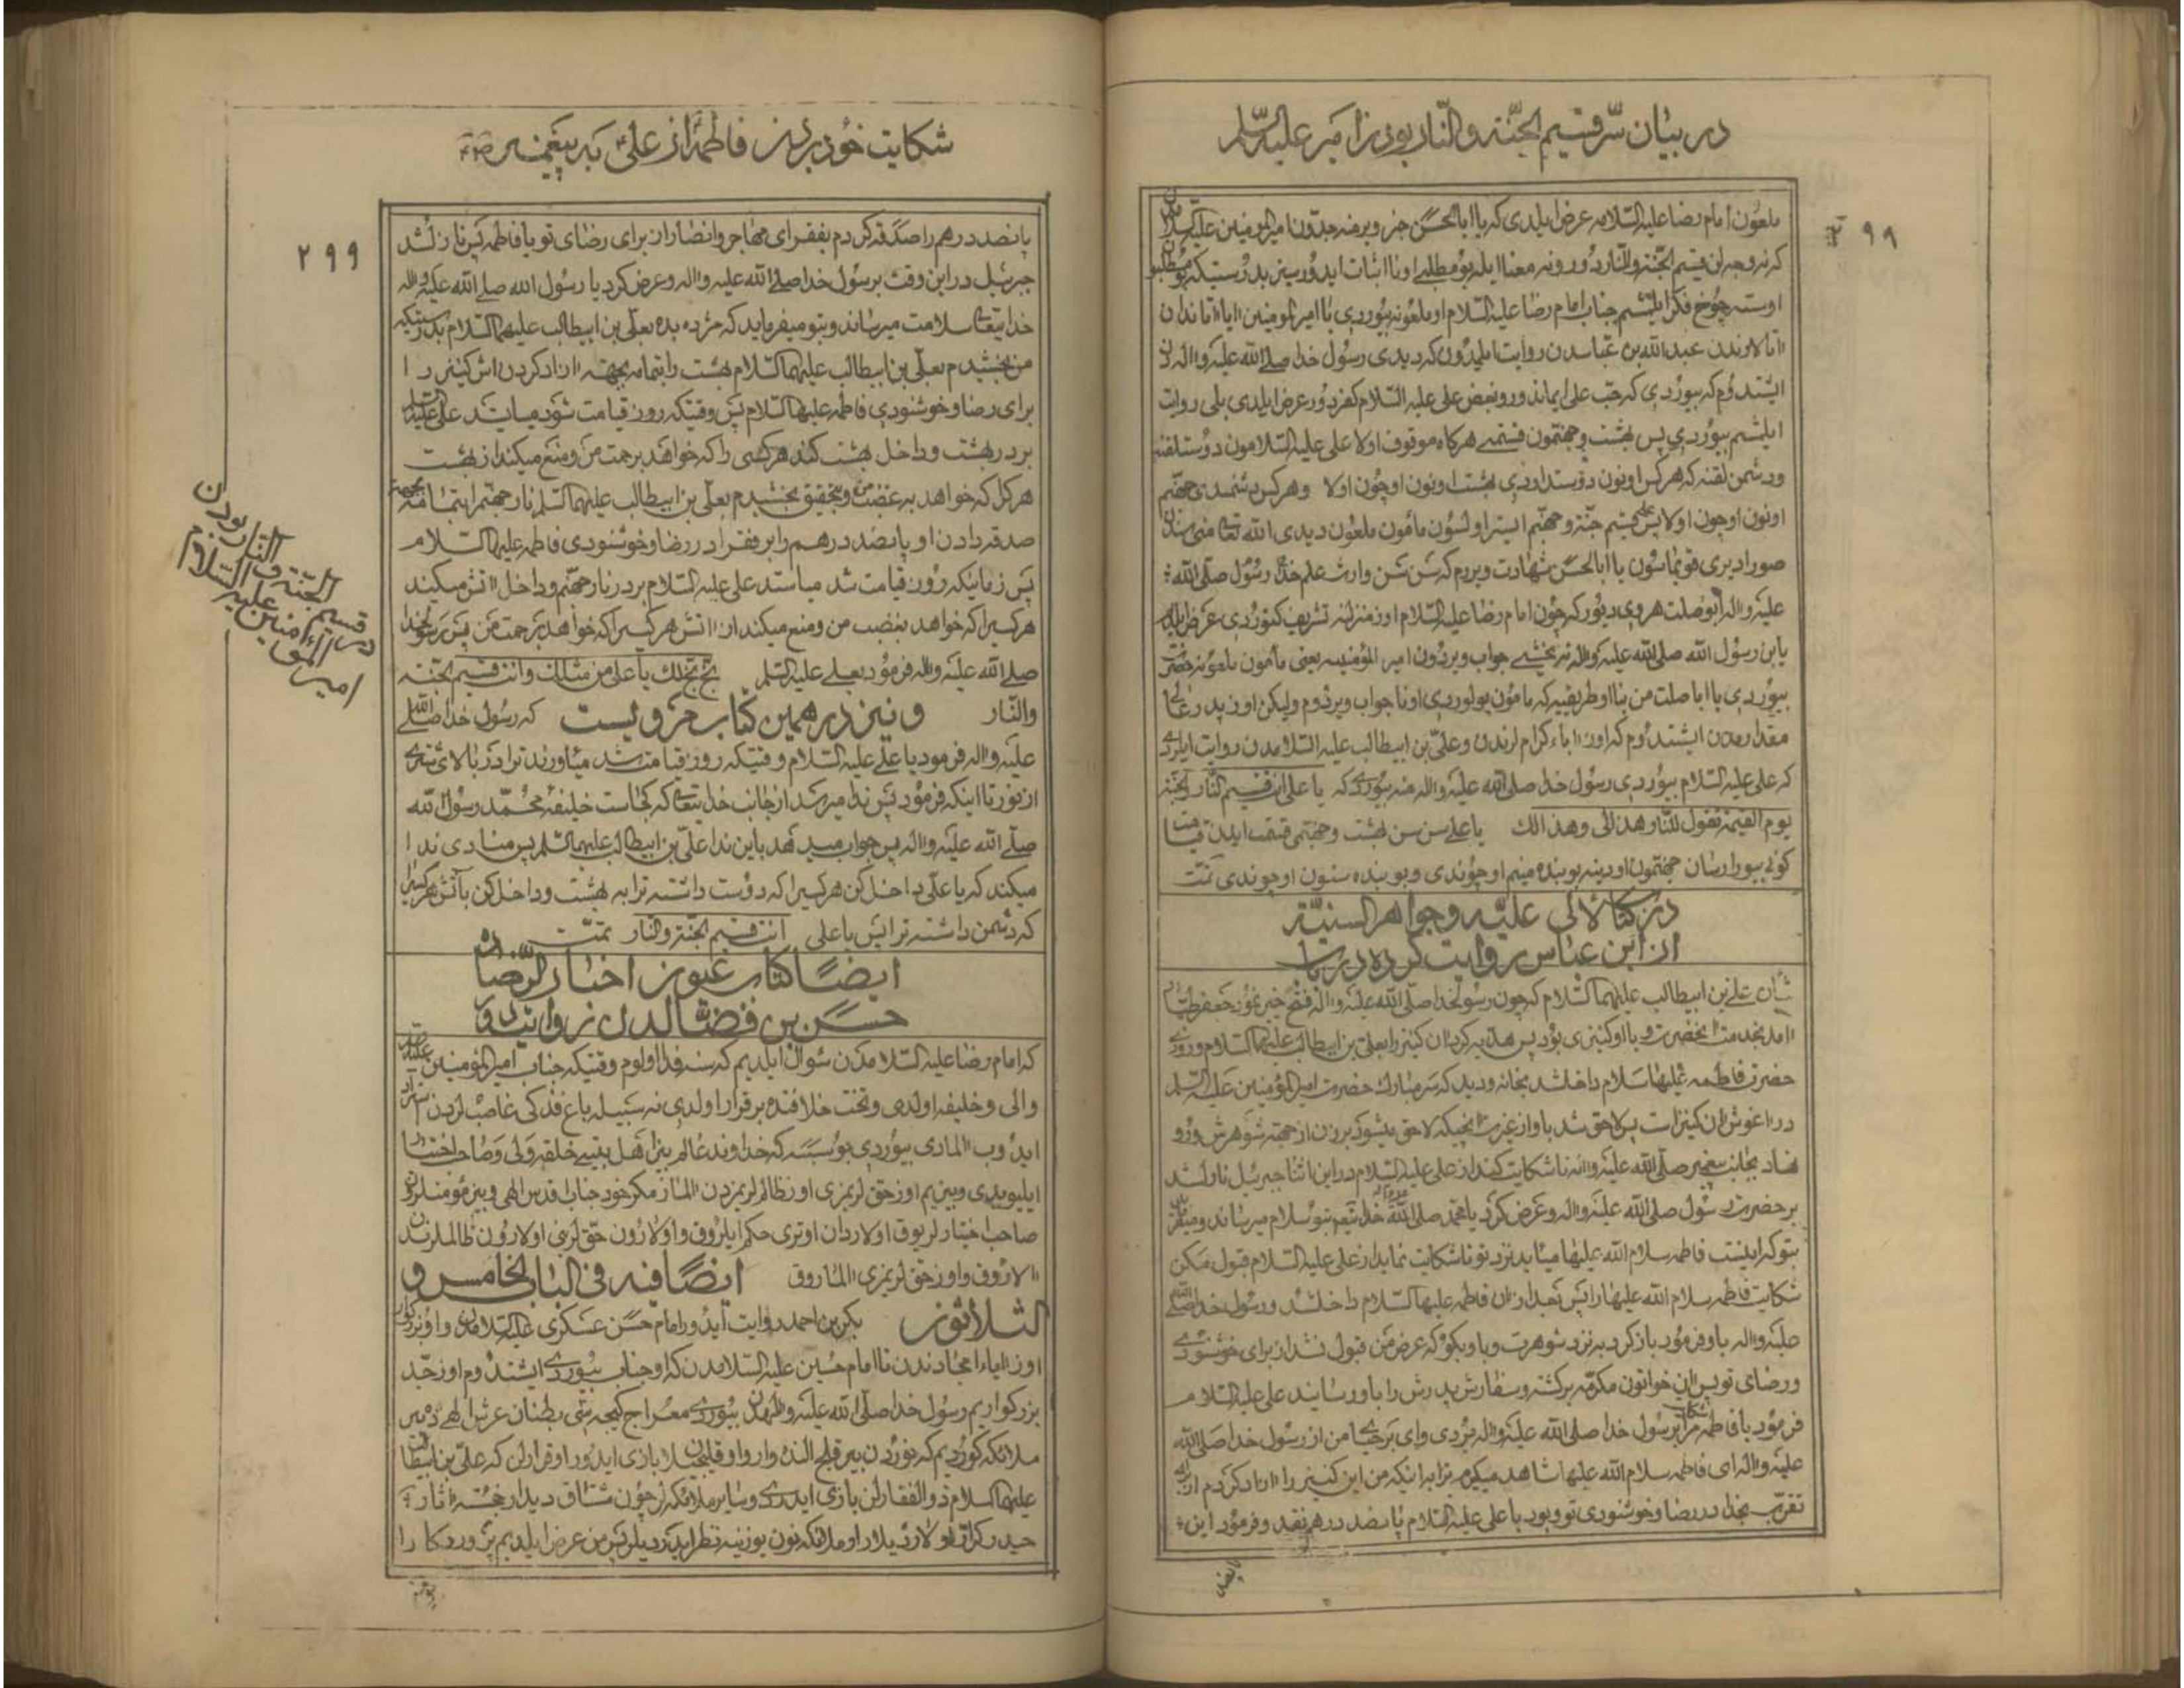 در بیان سّر قسیم الجنّة والنار بودن امیر علیه السّلام
۲۹۹
ملعون امام رضا علیه السّلامه عرض ایلدی که یا ابا الحسن خبر ویر منه جدّون امیر المؤمنین علیه السلام
که نه وجه لن قسیم الجنّة والنّار دور و نه معنا ایله بو مطلبی اونا اثبات ایدورسیز بدرستیکه بو مطلبو
اوسته چوخ فکر ایلیشم جناب امام رضا علیه السّلام او ملعونه بیوردی یا امیر المومنین ایا اتاندان
اتالاروندن عبدالله بن عباسدن روایت ایلمدون که دیدی رسول خدا صلی الله علیه واله دن
ایشتدوم که بیوردی که حبّ علی ایماندور و بغض علی علیه السّلام کفردور عرض ایلدی بلی روایت
ایلمشم بیوردی پس بهشت و جهنمون قسمتی هرکاه موقوف اولا علی علیه السّلامون دوستلقنه
و دشمن لقنه که هر کس اونون دوستداودی بهشت اونون اوچون اولا و هر کس دشمندی جهنّم
اونون اوچون اولا پس علی قسیم جنّة و جهنّم ایستر اولسون مأمون ملعون دیدی الله تعالی منی سندن
صورا دیری قویماسون یا ابا الحسن شهادت ویررم که سن سن وارث علم خدا و رسول صلّی الله
علیه واله ابوصلت هروی دیور که چون امام رضا علیه السّلام اوز منزلنه تشریف کتوردی عرض ایلدم
یابن رسول الله صلی الله علیه واله نه یخشی جواب ویردون امیر المؤمنینه یعنی مأمون ملعونه حضرت
بیوردی یا ابا صلت من بنا او طریقیه که مامون یولوردی اونا جواب ویردوم ولیکن اوز پدر عالی
مقدارمدن ایشتدوم که اوز اباء کرام لرندن و علیّ بن ابیطالب علیه السّلامدن روایت ایلردی
که علی علیه السّلام بیوردی رسول خدا صلی الله علیه واله منه بیوردی که یا علی انت قسیم النّار والجنّة
یوم القیمة تقول للنّار هذا لی وهذا لک یا علی سن سن بهشت و جهنّمی قسمت ایدن قیامت
کونی بیورارسان جهنّمون اودینه بو بنده منیم اوچوندی و بو بنده سنون اوچوندی تمّت
در کتاب لالی علیّه و جواهر السنیّة
از ابن عباس روایت کرده در باب
شان علی بن ابیطالب علیهما السّلام که چون رسول خدا صلی الله علیه واله فتح خیبر نمود جعفر طیّار
امد بخدمت انحضرت و با او کنیزی بود پس هدیه کرد ان کنیز را بعلی بن ابیطالب علیهما السّلام و روزی
حضرت فاطمه علیها سلام داخل شد بخانه و دید که سر مبارک حضرت امیر المؤمنین علیه السّلم
در اغوش ان کنیز است پس لاحق شد باو از غیرت انچیکه لاحق میشود بر زن از جهة شوهرش و رو
نهاد بجانب پیغمبر صلّی الله علیه واله تا شکایت کند از علی علیه السّلام در این اثنا جبرئیل نازل شد
بر حضرت رسول صلی الله علیه واله و عرض کرد یا محمّد صلی الله علیه واله خدا یتعالی بتو سلام میرساند و میفرماید
بتو که اینست فاطمه سلام الله علیها میاید نزد تو تا شکایت نماید از علی علیه السّلام قبول مکن
شکایت فاطمه سلام الله علیها را پس بعد از ان فاطمه علیها السّلام داخل شد و رسول خدا صلی الله
علیه واله باو فرمود باز کرد به نزد شوهرت و باو بکو که عرض من قبول نشد از برای خوشنودی
و رضای تو پس ان خواتون مکرّمه برکشته و سفارش پدرش را باو رسانید علی علیه السلام
فرمود یا فاطمه شکایت مرا بر رسول خدا صلی الله علیه واله بردی وای بر حیای من از رسول خدا صلی الله
علیه واله ای فاطمه سلام الله علیها شاهد میکیرم ترا به اینکه من این کنیز را ازاد کردم از برای
تقرّب بخدا در رضا و خوشنودی تو و بود با علی علیه السّلام پانصد درهم نقد و فرمود این
پانصد
شکایت خود بردن فاطمه از علی به پیغمبر
۲۹۹
پانصد درهم را صدقه کردم بفقرای مهاجر و انصار ان برای رضای تو یا فاطمه پس نازل شد
جبرئیل در این وقت بر رسول خدا صلی الله علیه واله و عرض کرد یا رسول الله صلی الله علیه واله
خدا یتعالی سلامت میرساند و بتو میفرماید که مژده بده بعلی بن ابیطالب علیهما السّلام بدرستیکه
من بخشیدم بعلی بن ابیطالب علیهما السّلام بهشت را بتمامه بجهة ازاد کردن اش کنیز را
برای رضا و خوشنودی فاطمه علیها السّلام پس وقتیکه روز قیامت شود میایستد علی علیه السلام
بر در بهشت و داخل بهشت کند هر کسی را که خواهد برحمت من و منع میکند از بهشت
هر کرا که خواهد به غضب من و بتحقیق بخشیدم بعلی بن ابیطالب علیهما السّلم نار جهنّم را بتمامه بجهة
صدقه دادن او پانصد درهم را بر فقرا در رضا و خوشنودی فاطمه علیها السّلام
پس زمانیکه روز قیامت شد میاستد علی علیه السّلام بر در نار جهنّم و داخل اتش میکند
هر کسیرا که خواهد بغضب من و منع میکند از اتش هر کسیرا که خواهد برحمت من پس رسول خدا
صلی الله علیه واله فرمود بعلی علیه السّلم بخّ بخّ لک یا علی من مثلک وانت قسیم الجنّة
والنّار و نیز در همین کتاب مرویست که رسول خدا صلّی الله
علیه واله فرمود یا علی علیه السلام وقتیکه روز قیامت شد میاورند ترا در بالای شتری
از نور تا اینکه فرمود پس ندا میرسد از جانب خدا یتعالی که کجاست خلیفهٔ محمّد رسول الله
صلّی الله علیه واله پس جواب میدهد باین ندا علیّ بن ابیطالب علیهما السّلم پس منادی ندا
میکند که یا علی داخل کن هر کسیرا که دوست داشته ترا به بهشت و داخل کن بآتش هر کسیرا
که دشمن داشته ترا پس یا علی انت قسیم الجنّة والنّار تمّت
ایضًا کتاب عیون اخبار الرّضا ده
حسن بن فضّالدن روایتدور
که امام رضا علیه السّلامدن سوال ایلدیم که سنه فدا اولوم وقتیکه جناب امیر المومنین علیه السلام
والی و خلیفه اولدی و تخت خلافنده برقرار اولدی نه سببیله باغ فدکی غاصب لردن استرداد
ایدوب المادی بیوردی بو سببه که خداوند عالم بیز اهل بیتی خلقه ولی و صاحب اختیار
ایلیوبدی و بیز یم اوز حق لریمزی او ز ظالم لریمزدن المازوخ مکر خود جناب اقدس الهی و بیز مؤمنلرون
صاحب اختیار لریوق اولاردان اوتری حکم ایلروق و اولارون حق لرنی اولارون ظالملرندن
الاروق و اوز حق لریمزی الماروق ایضًا فیه فی الباب الخامس و
الثلاثون بکر بن احمد روایت ایدور امام حسن عسکری علیه السّلامدن و او بزرکوار
اوز اباء امجادندن تا امام حسین علیه السّلامدن که او جناب بیوردی ایشتدوم اوز جدّ
بزرکواریم رسول خدا صلّی الله علیه والهدن بیوردی معراج کیجه سی بطنان عرش الهی ده بیر
ملائکه کوردیم که نوردن بیر قلج النده وار و او قلیجله بازی ایدور او قرار لن که علیّ بن ابیطالب
علیهما السلام ذوالفقار لن بازی ایدردی و سایر ملائکه لر چون مشتاق دیدار خجسته اثار
حیدر کرّار اولاردیلار او ملائکه نون یوزینه نظر ایدردیلر پس من عرض ایلدیم پروردکارا
در قسیم الجنّة و النار بودن
امیر المؤمنین علیه السّلام